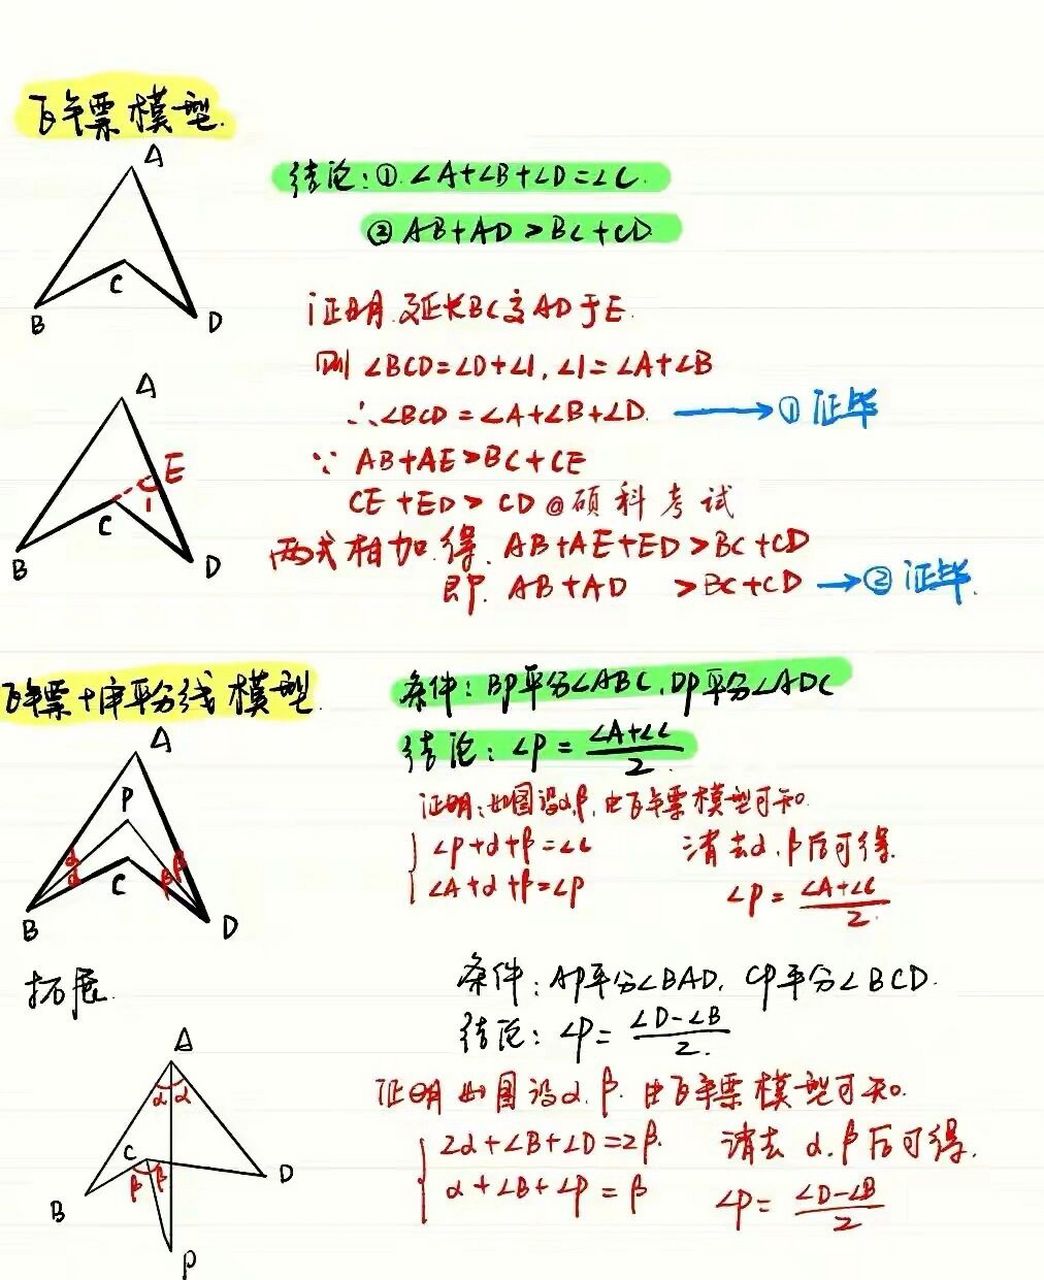 飞镖模型.
A
B
C
D
结论:①.∠A+∠B+∠D=∠C.
② AB+AD>BC+CD
证明.延长BC交AD于E.
则∠BCD=∠D+∠1,∠1=∠A+∠B
∴∠BCD=∠A+∠B+∠D. → ① 证毕
∵ AB+AE>BC+CE
CE+ED>CD @硕科考试
两式相加.得.AB+AE+ED>BC+CD
即.AB+AD >BC+CD → ② 证毕.
A
E
1
C
B
D
飞镖+角平分线模型.
条件:BP平分∠ABC.DP平分∠ADC
结论:∠P=(∠A+∠C)/2.
证明:如图设α.β,由飞镖模型可知.
∠P+α+β=∠C
∠A+α+β=∠P
消去α.β后可得.
∠P=(∠A+∠C)/2.
A
P
α
α
β
β
C
B
D
拓展.
条件:AP平分∠BAD,CP平分∠BCD.
结论:∠P=(∠D-∠B)/2.
证明 如图设α.β.由飞镖模型可知.
2α+∠B+∠D=2β.
α+∠B+∠P=β
消去α.β后可得.
∠P=(∠D-∠B)/2
A
α
α
C
β
β
B
D
P